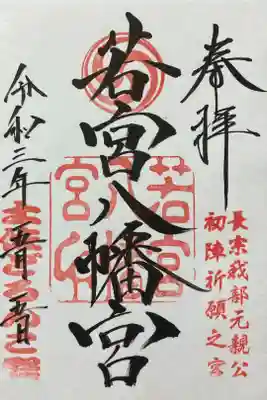 奉拝
長宗我部元親公
初陣祈願之宮
若宮八幡宮
若宮
八幡宮
令和三年
五月五日